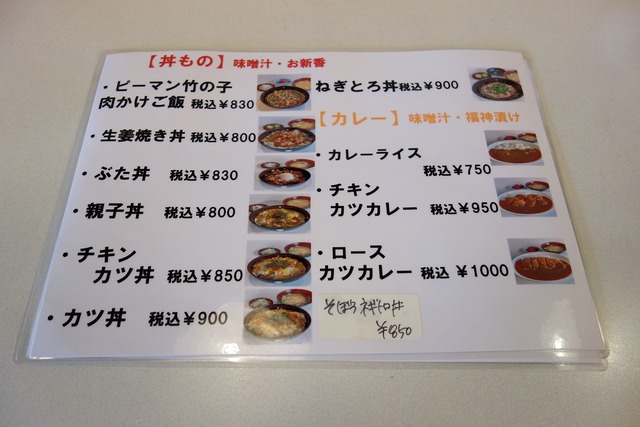 【丼もの】味噌汁・お新香
・ピーマン竹の子
肉かけご飯 税込￥830
・生姜焼き丼 税込￥800
・ぶた丼 税込￥830
・親子丼 税込￥800
・チキン
カツ丼 税込￥850
・カツ丼 税込￥900
ねぎとろ丼税込￥900
【カレー】味噌汁・福神漬け
・カレーライス
税込￥750
・チキン
カツカレー 税込￥950
・ロース
カツカレー 税込 ￥1000
そぼろネギトロ丼
￥850